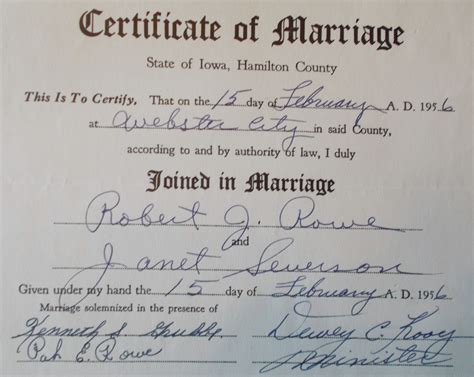 Certificate of Marriage
State of Iowa, Hamilton County
This Is To Certify, That on the 15 day of February A. D. 1956
at Webster City in said County,
according to and by authority of law, I duly
Joined in Marriage
Robert J. Rowe
and
Janet Severson
Given under my hand the 15 day of February A. D. 1956
Marriage solemnized in the presence of
Kenneth Dewey C.
Pat E. Rowe Minister